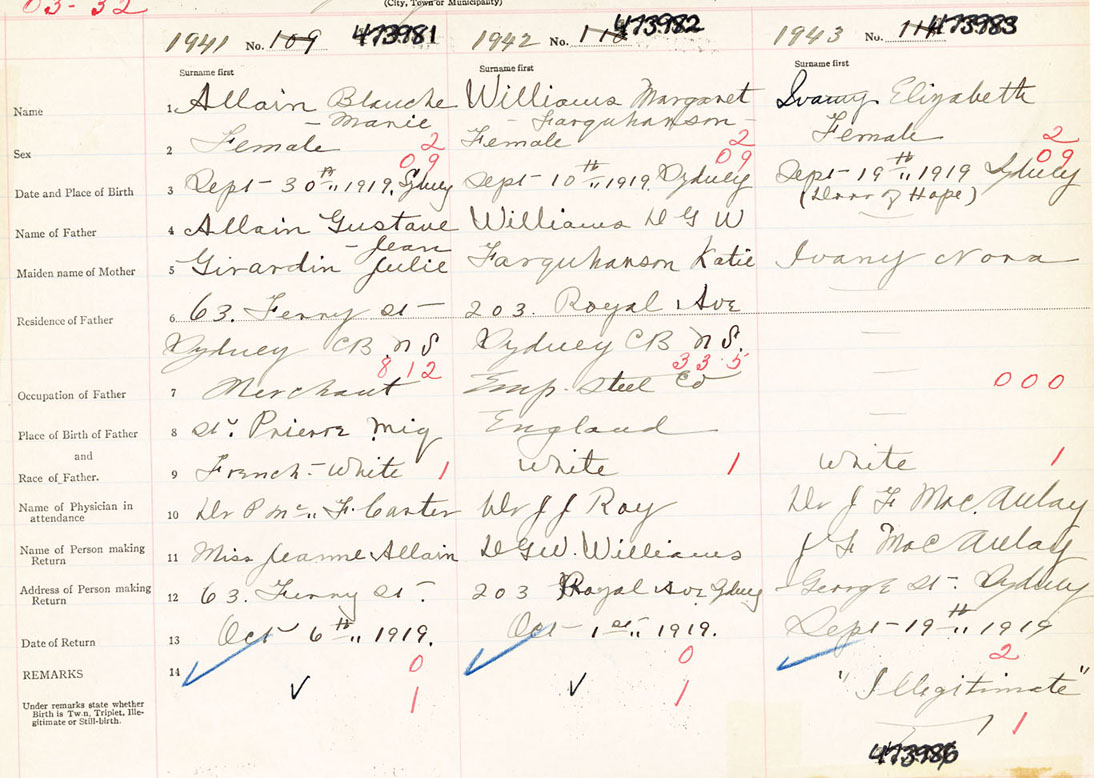 03-32
(City, Town or Municipality)
1941 No. 109 473981 1942 No. 473982 1943 No. 473983
Surname first Surname first Surname first
Name 1 Allain Blanche Williams Margaret Ivany Elizabeth
- Marie - Farquharson -
Sex 2 Female 2 Female 2 Female 2
09 09 09
Date and Place of Birth 3 Sept - 30th 1919, Sydney Sept - 10th 1919, Sydney Sept - 19th 1919 Sydney
(Door of Hope)
Name of Father 4 Allain Gustave Williams D G W
- Jean
Maiden name of Mother 5 Girardin Julie Farquharson Katie Ivany Nora
Residence of Father 6 63. Ferry St - 203. Royal Ave
Sydney CB. N S Sydney CB N S.
812 335
Occupation of Father 7 Merchant Emp. Steel Co 000
Place of Birth of Father 8 St. Prierre Miq England
and
Race of Father. 9 French - White 1 White 1 White 1
Name of Physician in
attendance 10 Dr F. Carter Dr J J Roy Dr J F MacAulay
Name of Person making
Return 11 Miss Jeanne Allain D G W. Williams J F MacAulay
Address of Person making
Return 12 63. Ferry St. 203 Royal Ave Sydney George St. Sydney
Date of Return 13 Oct 6th 1919. Oct - 1st 1919. Sept - 19th 1919
REMARKS 14 0 0 2
"Illegitimate"
Under remarks state whether
Birth is Twin, Triplet, Ille-
gitimate or Still-birth.
1 1 1